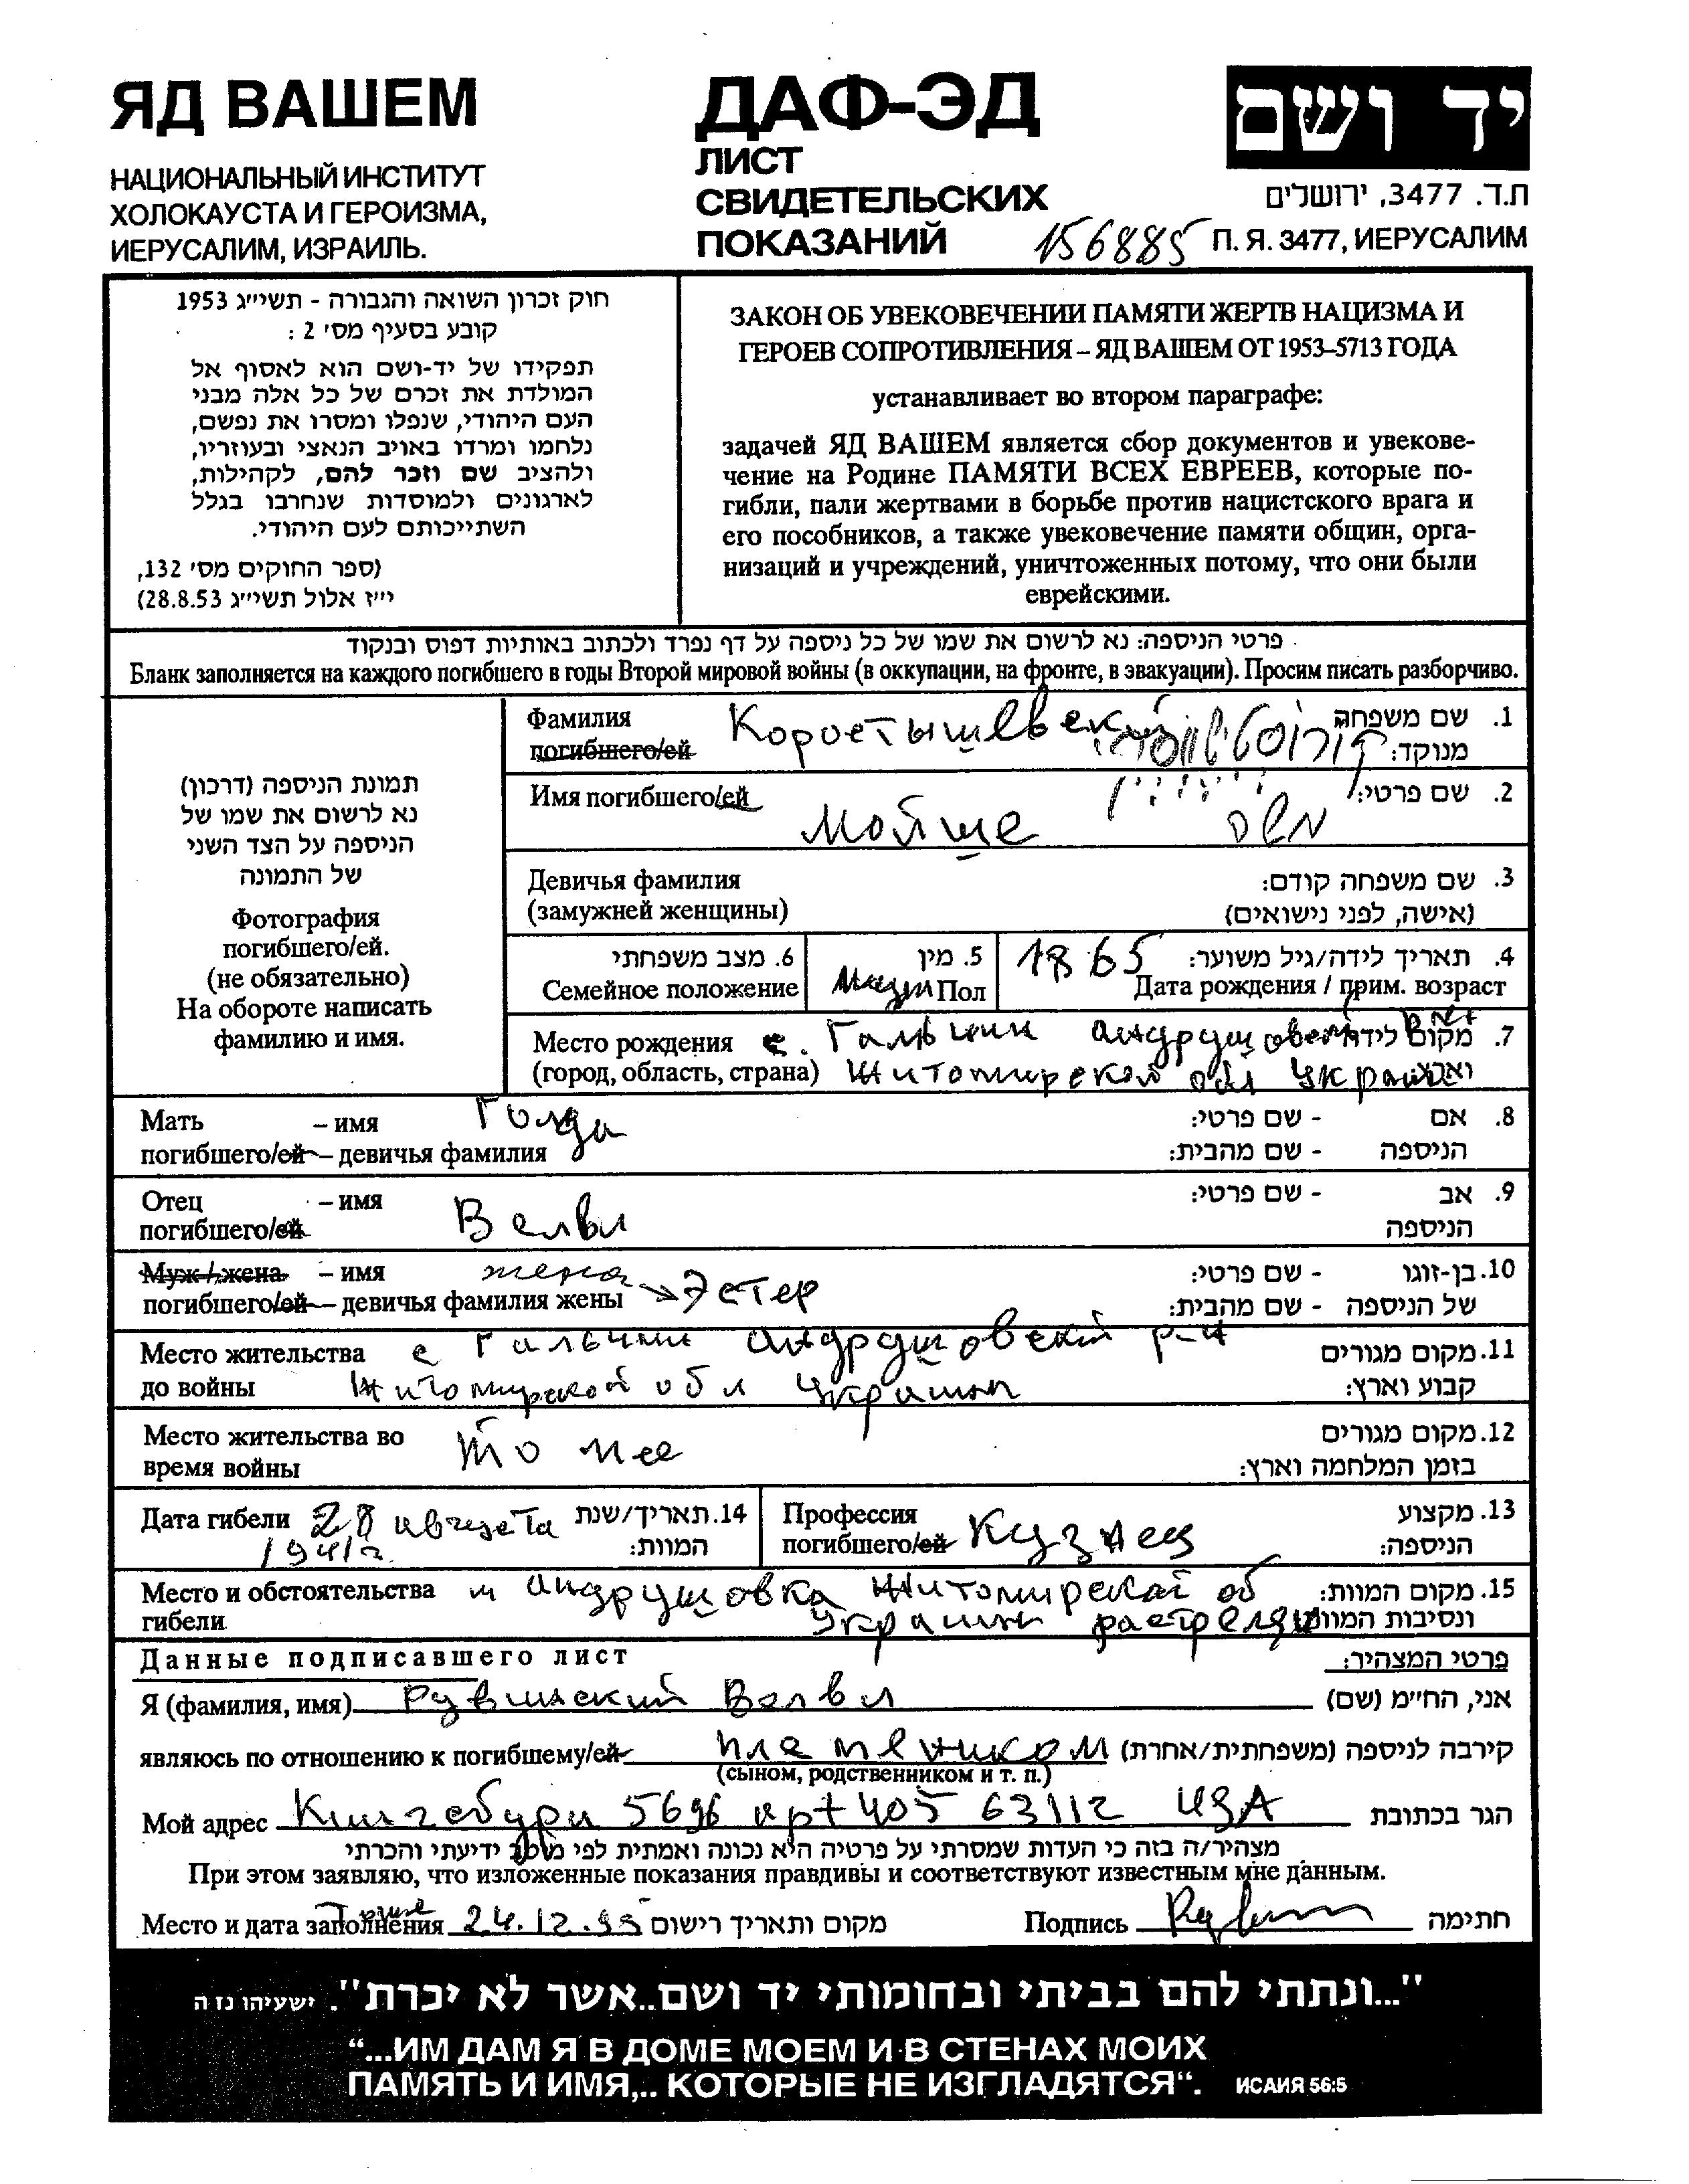 ЯД ВАШЕМ
НАЦИОНАЛЬНЫЙ ИНСТИТУТ
ХОЛОКАУСТА И ГЕРОИЗМА,
ИЕРУСАЛИМ, ИЗРАИЛЬ.
ДАФ-ЭД
ЛИСТ
СВИДЕТЕЛЬСКИХ
ПОКАЗАНИЙ
156885
יד ושם
ת.ד. 3477, ירושלים
П. Я. 3477, ИЕРУСАЛИМ
חוק זכרון השואה והגבורה - תשי״ג 1953
קובע בסעיף מס׳ 2 :
תפקידו של יד-ושם הוא לאסוף אל
המולדת את זכרם של כל אלה מבני
העם היהודי, שנפלו ומסרו את נפשם,
נלחמו ומרדו באויב הנאצי ובעוזריו,
ולהציב שם וזכר להם, לקהילות,
לארגונים ולמוסדות שנחרבו בגלל
השתייכותם לעם היהודי.
(ספר החוקים מס׳ 132,
י״ז אלול תשי״ג 28.8.53)
ЗАКОН ОБ УВЕКОВЕЧЕНИИ ПАМЯТИ ЖЕРТВ НАЦИЗМА И
ГЕРОЕВ СОПРОТИВЛЕНИЯ – ЯД ВАШЕМ ОТ 1953–5713 ГОДА
устанавливает во втором параграфе:
задачей ЯД ВАШЕМ является сбор документов и увекове-
чение на Родине ПАМЯТИ ВСЕХ ЕВРЕЕВ, которые по-
гибли, пали жертвами в борьбе против нацистского врага и
его пособников, а также увековечение памяти общин, орга-
низаций и учреждений, уничтоженных потому, что они были
еврейскими.
פרטי הניספה: נא לרשום את שמו של כל ניספה על דף נפרד ולכתוב באותיות דפוס ובנקוד
Бланк заполняется на каждого погибшего в годы Второй мировой войны (в оккупации, на фронте, в эвакуации). Просим писать разборчиво.
תמונת הניספה (דרכון)
נא לרשום את שמו של
הניספה על הצד השני
של התמונה
Фотография
погибшего/ей.
(не обязательно)
На обороте написать
фамилию и имя.
Фамилия Коростышевский 1. שם משפחה
погибшего/ей מנוקד:
Имя погибшего/ей Мойше משה 2. שם פרטי:
Девичья фамилия 3. שם משפחה קודם:
(замужней женщины) (אישה, לפני נישואים)
6. מצב משפחתי
Семейное положение
5. מין
Муж Пол
1865 4. תאריך לידה/גיל משוער:
Дата рождения / прим. возраст
Место рождения с. Гальчин Андрушовский р-н 7. מקום לידה
(город, область, страна) Житомирской обл Украина וארץ:
Мать – имя Голда 8. אם - שם פרטי:
погибшего/ей – девичья фамилия הניספה - שם מהבית:
Отец – имя Велвл 9. אב - שם פרטי:
погибшего/ей הניספה
Муж / жена – имя жена 10. בן-זוגו - שם פרטי:
погибшего/ей – девичья фамилия жены → Эстер של הניספה - שם מהבית:
Место жительства с Гальчин Андрушовский р-н 11. מקום מגורים
до войны Житомирской обл Украины קבוע וארץ:
Место жительства во То же 12. מקום מגורים
время войны בזמן המלחמה וארץ:
Дата гибели 28 августа 14. תאריך/שנת
1941г. המוות:
Профессия 13. מקצוע
погибшего/ей Кузнец הניספה:
Место и обстоятельства м Андрушовка Житомирской об 15. מקום המוות:
гибели Украины расстрелян ונסיבות המוות:
Данные подписавшего лист פרטי המצהיר:
Я (фамилия, имя) Рувинский Велвл אני, הח״מ (שם)
являюсь по отношению к погибшему/ей племенником קירבה לניספה (משפחתית/אחרת)
(сыном, родственником и т. п.)
Мой адрес Кингсбури 5696 apt 405 63112 USA הגר בכתובת
מצהיר/ה בזה כי העדות שמסרתי על פרטיה היא נכונה ואמתית לפי מיטב ידיעתי והכרתי
При этом заявляю, что изложенные показания правдивы и соответствуют известным мне данным.
Место и дата заполнения 24.12.95 מקום ותאריך רישום Подпись חתימה
"...ונתתי להם בביתי ובחומותי יד ושם..אשר לא יכרת". ישעיהו נז ה
“...ИМ ДАМ Я В ДОМЕ МОЕМ И В СТЕНАХ МОИХ
ПАМЯТЬ И ИМЯ,.. КОТОРЫЕ НЕ ИЗГЛАДЯТСЯ“. ИСАИЯ 56:5